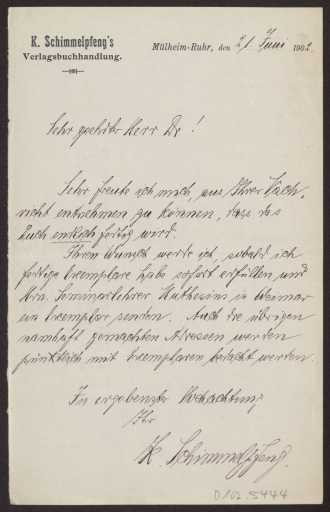 K. Schimmelpfeng's
Verlagsbuchhandlung.
Mülheim-Ruhr, den 21. Juni 1902.
Sehr geehrter Herr Dr!
Sehr freute ich mich, aus Ihrer Nach-
richt entnehmen zu können, dass das
Buch endlich fertig wird.
Ihren Wunsch werde ich, sobald ich
fertige Exemplare habe sofort erfüllen und
Hrn. Seminarlehrer Muthesius in Weimar
ein Exemplar senden. Auch die übrigen
namhaft gemachten Adressen werden
pünktlich mit Exemplaren bedacht werden.
In ergebenster Hochachtung
Ihr
K. Schimmelpfeng.
D 102. 5444